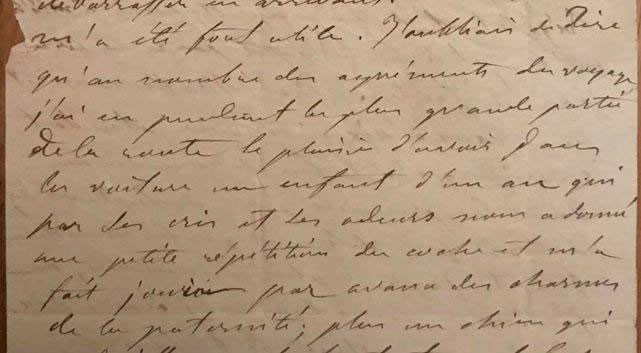 m'a été fort utile. J'oubliais de dire
qu'au nombre des agréments du voyage
j'ai eu pendant la plus grande partie
de la route le plaisir d'avoir dans
la voiture un enfant d'un an qui
par ses cris et ses odeurs nous a donné
une petite répétition du et m'a
fait jouir par avance des charmes
de la paternité; plus un chien qui